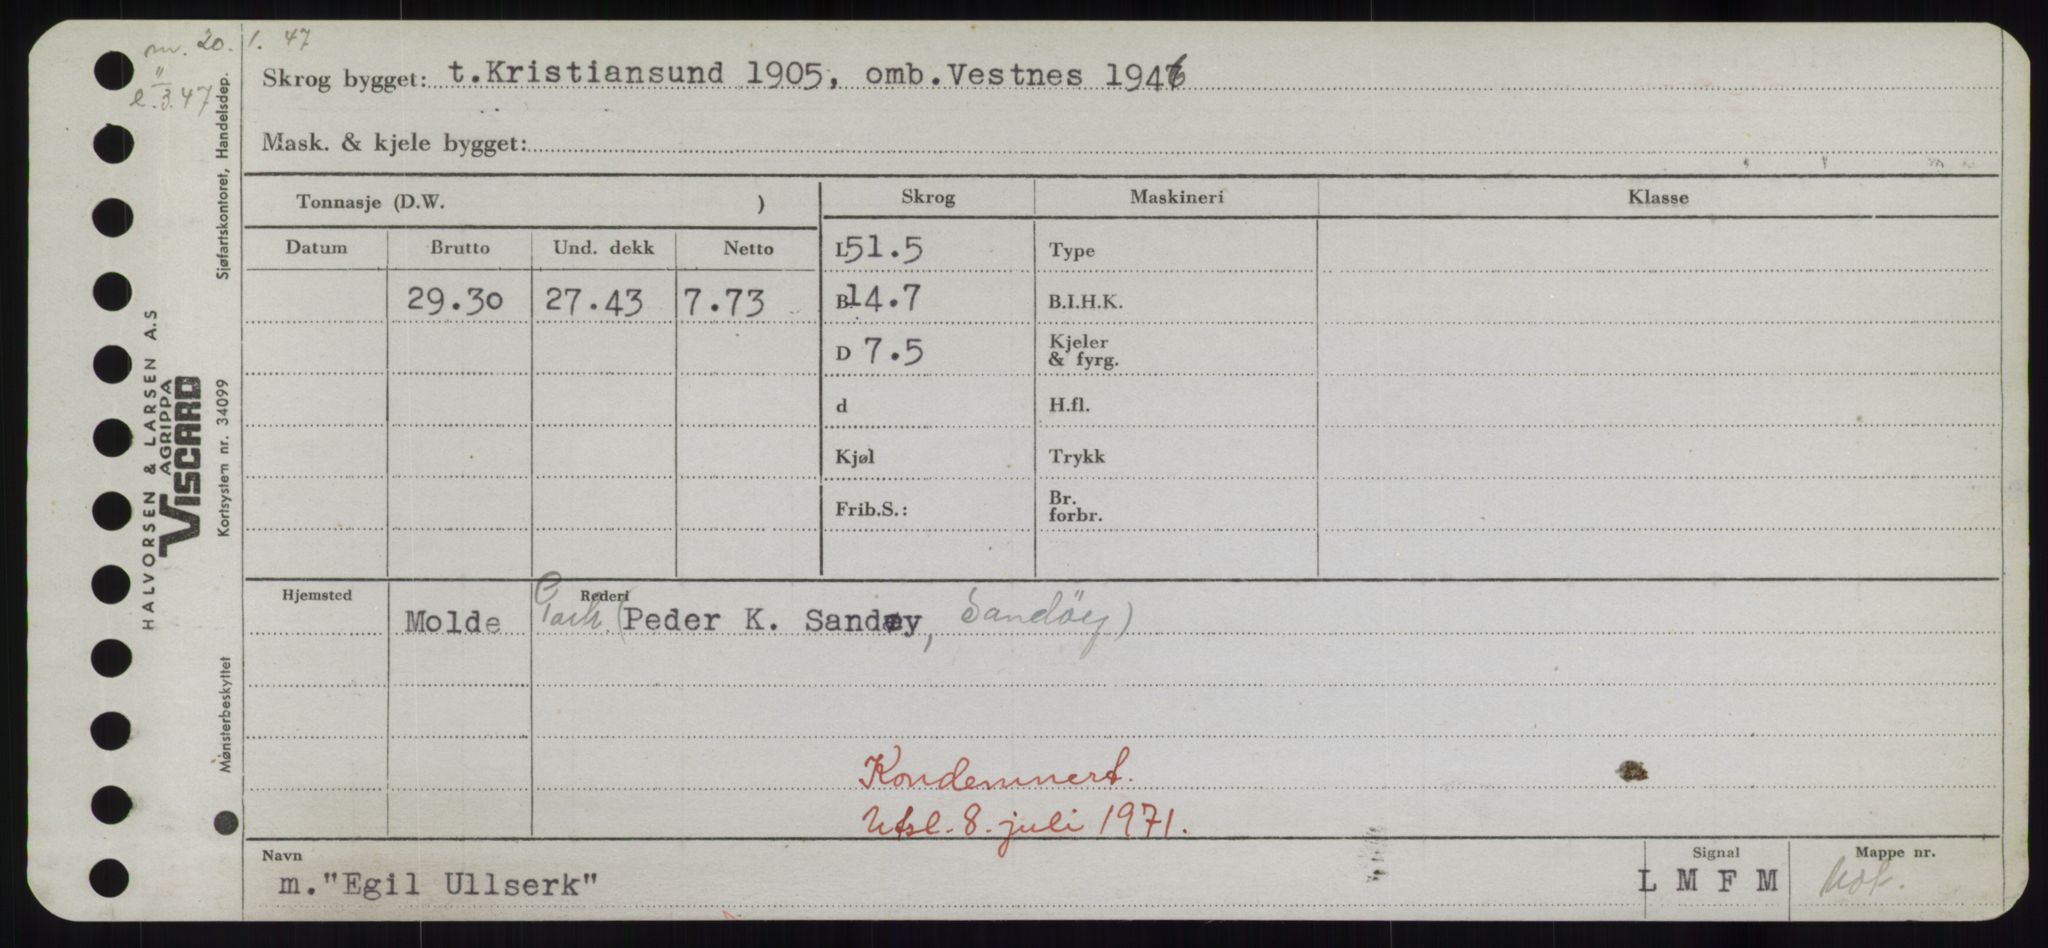 m. 20. 1. 47
" 
e. 3. 47
Skrog bygget: t.Kristiansund 1905, omb.Vestnes 1946
Mask. & kjele bygget:
Tonnasje (D.W. ) Skrog Maskineri Klasse
Datum Brutto Und. dekk Netto L 51.5 Type
29.30 27.43 7.73 B 14.7 B.I.H.K.
D 7.5 Kjeler & fyrg.
d H.fl.
Kjøl Trykk
Frib.S.: Br. forbr.
Hjemsted Rederi
Molde (Peder K. Sandøy, Sandöy)
Kondemnert.
Utsl. 8. juli 1971.
Navn Signal Mappe nr.
m."Egil Ullserk" L M F M
HALVORSEN & LARSEN A.S
AGRIPPA
VISCARD
Sjøfartskontoret, Handelsdep.
Kortsystem nr. 34099
Mønsterbeskyttet